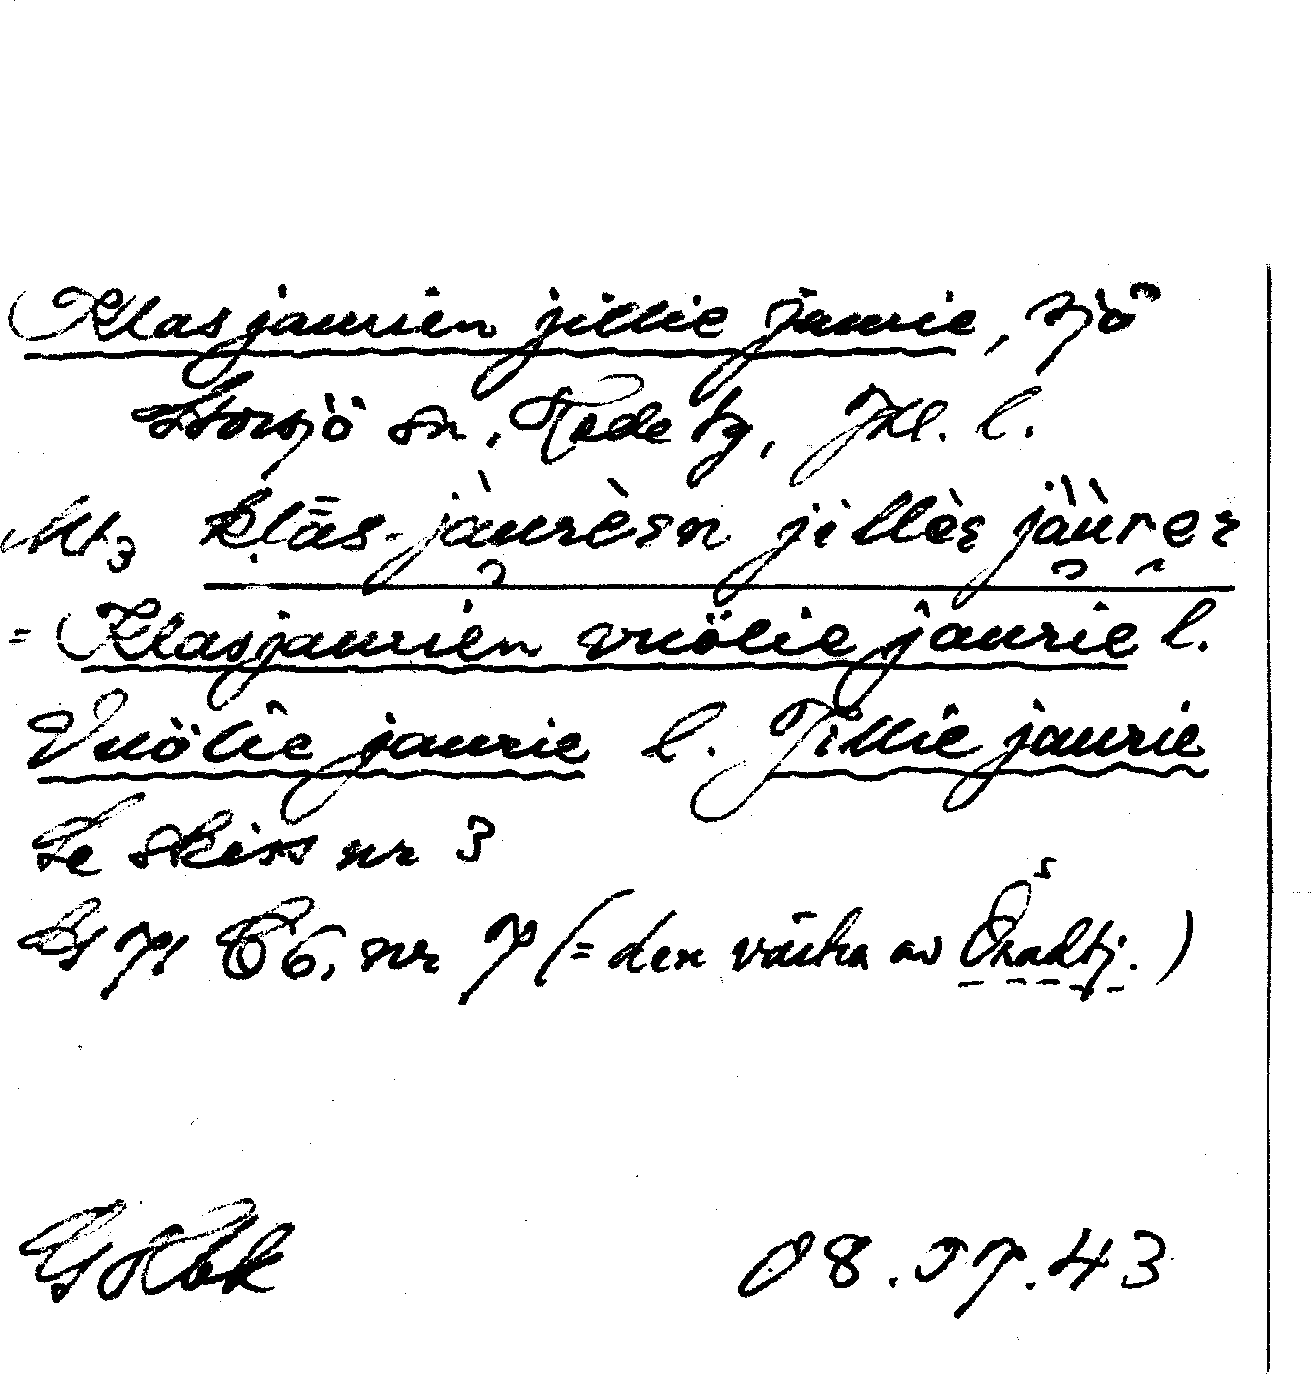 Klasjaurien jillie jaurie, sjö
Storsjö sn, Rede tg, Jtl. l.
Mt3 klās-jàurèεn jillèε jàùreε
= Klasjaurien vuölie jaurie l.
Vuölie jaurie l. Jillie jaurie
Se skiss nr 3
nr 7 (= den västra av Öradtj.)
08.07.43